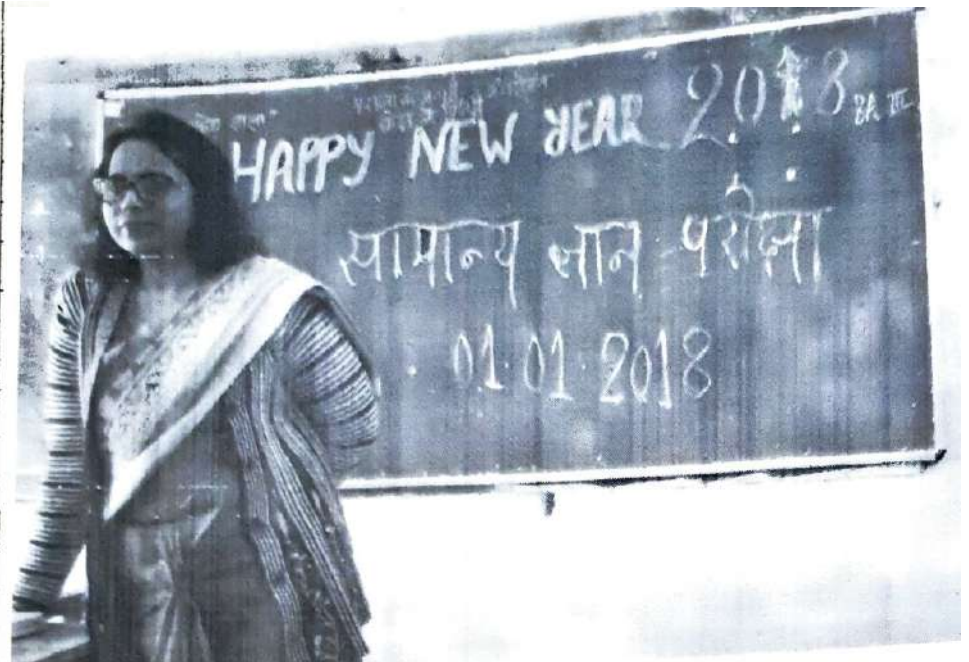 HAPPY NEW YEAR 2018 BA III
सामान्य ज्ञान परीक्षा
01.01.2018